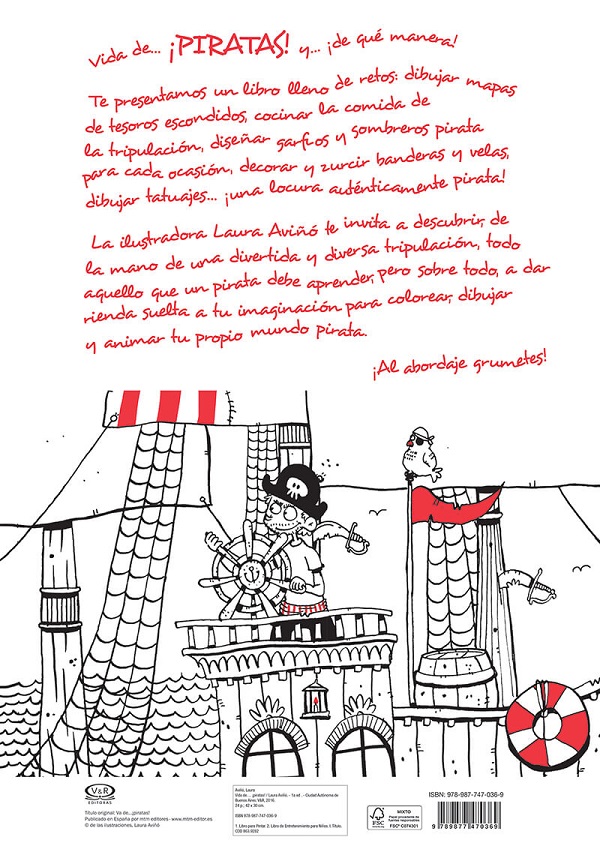 Vida de... ¡PIRATAS! y... ¡de qué manera!
Te presentamos un libro lleno de retos: dibujar mapas
de tesoros escondidos, cocinar la comida de
la tripulación, diseñar garfios y sombreros pirata
para cada ocasión, decorar y zurcir banderas y velas,
dibujar tatuajes... ¡una locura auténticamente pirata!
La ilustradora Laura Aviñó te invita a descubrir, de
la mano de una divertida y diversa tripulación, todo
aquello que un pirata debe aprender, pero sobre todo, a dar
rienda suelta a tu imaginación para colorear, dibujar
y animar tu propio mundo pirata.
¡Al abordaje grumetes!
V&R
EDITORAS
Título original: Va de...¡pirates!
Publicado en España por mtm editores - www.mtm-editor.es
© de las ilustraciones, Laura Aviñó
Aviñó, Laura
Vida de... ¡piratas! / Laura Aviñó. - 1a ed. - Ciudad Autónoma de
Buenos Aires: V&R, 2016.
24 p.; 42 x 30 cm.
ISBN 978-987-747-036-9
1. Libro para Pintar. 2. Libro de Entretenimiento para Niños. I. Título.
CDD 863.9282
FSC
MIXTO
Papel procedente de
fuentes responsables
FSC® C074301
ISBN: 978-987-747-036-9
9 789877 470369